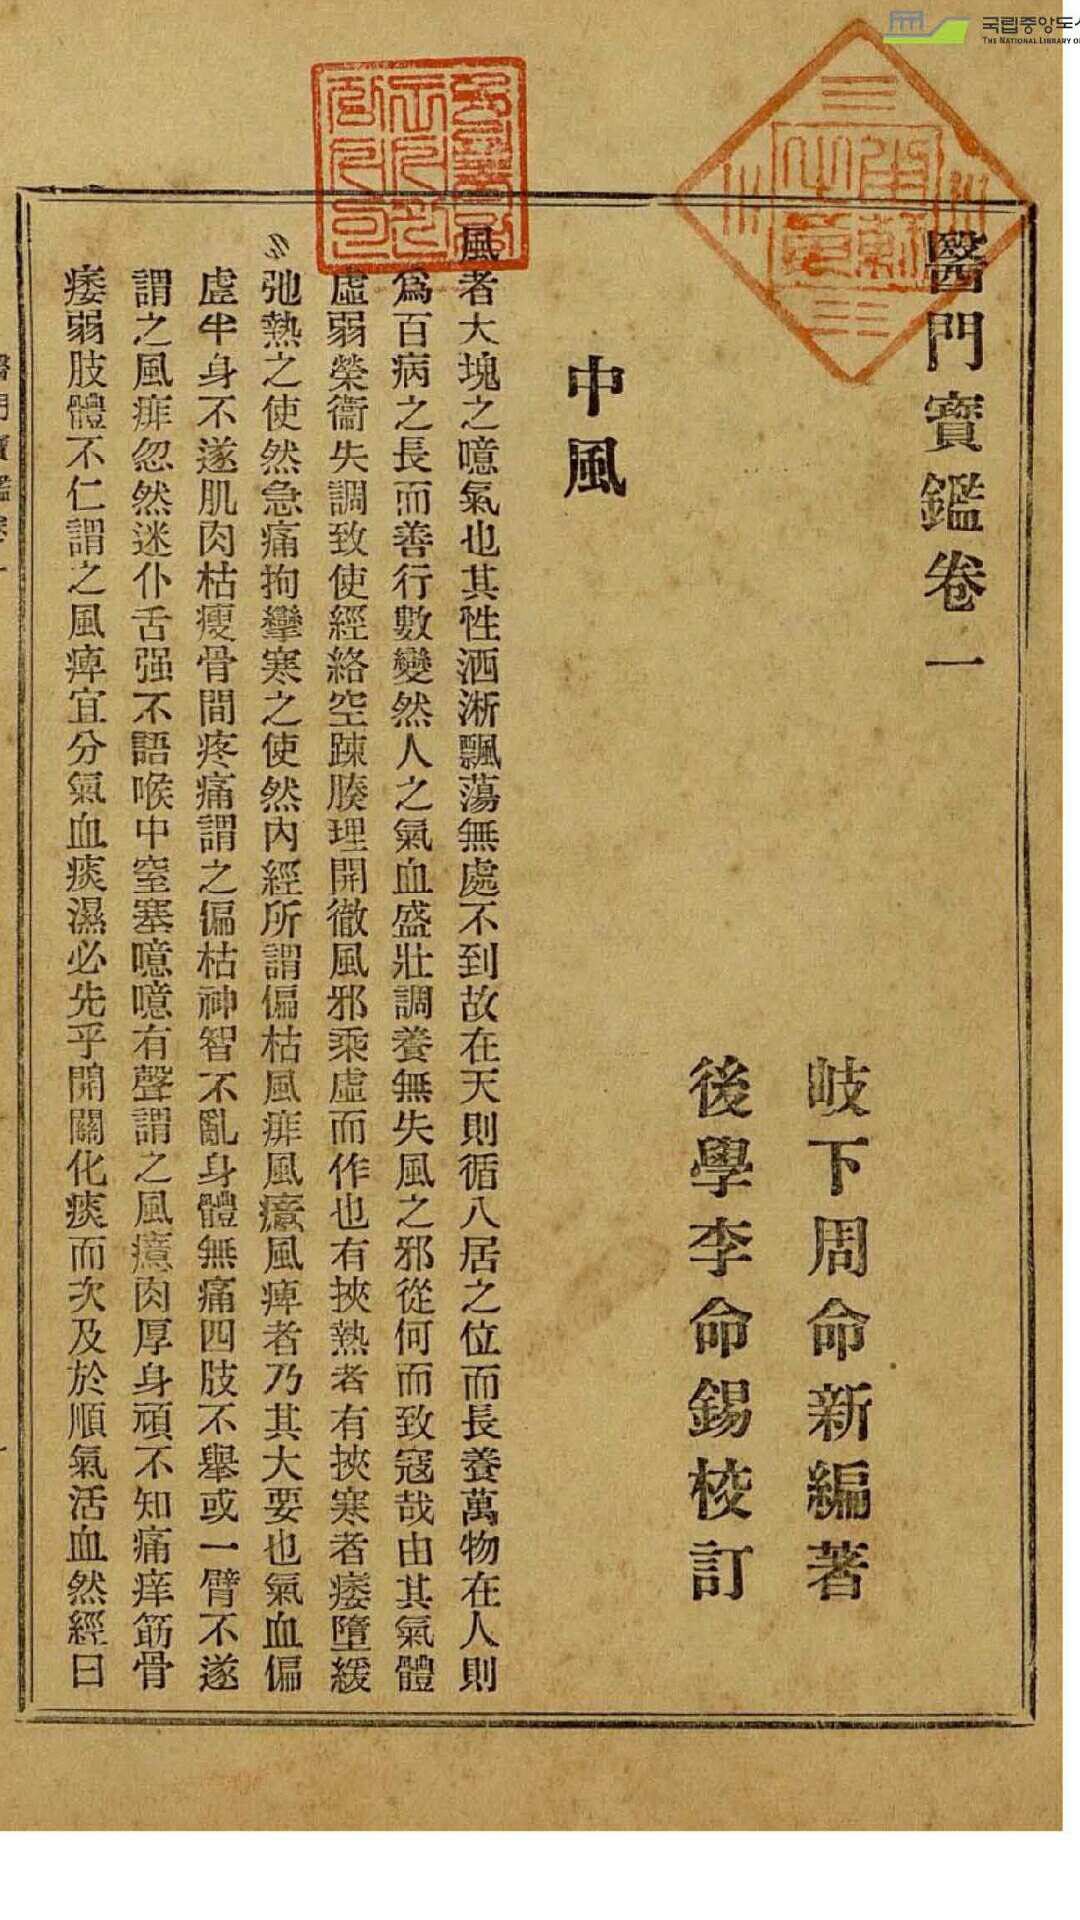 국립중앙도서
THE NATIONAL LIBRARY OF
醫門寶鑑卷一
岐下周命新編著
後學李命錫校訂
中風
風者大塊之噫氣也其性洒淅飄蕩無處不到故在天則循八居之位而長養萬物在人則
爲百病之長而善行數變然人之氣血盛壯調養無失風之邪從何而致寇哉由其氣體
虛弱榮衞失調致使經絡空踈腠理開徹風邪乘虛而作也有挾熱者有挾寒者痿墮緩
弛熱之使然急痛拘攣寒之使然內經所謂偏枯風痱風癔風痺者乃其大要也氣血偏
虛半身不遂肌肉枯瘦骨間疼痛謂之偏枯神智不亂身體無痛四肢不擧或一臂不遂
謂之風痱忽然迷仆舌强不語喉中窒塞噫噫有聲謂之風癔肉厚身頑不知痛痒筋骨
痿弱肢體不仁謂之風痺宜分氣血痰濕必先乎開關化痰而次及於順氣活血然經曰